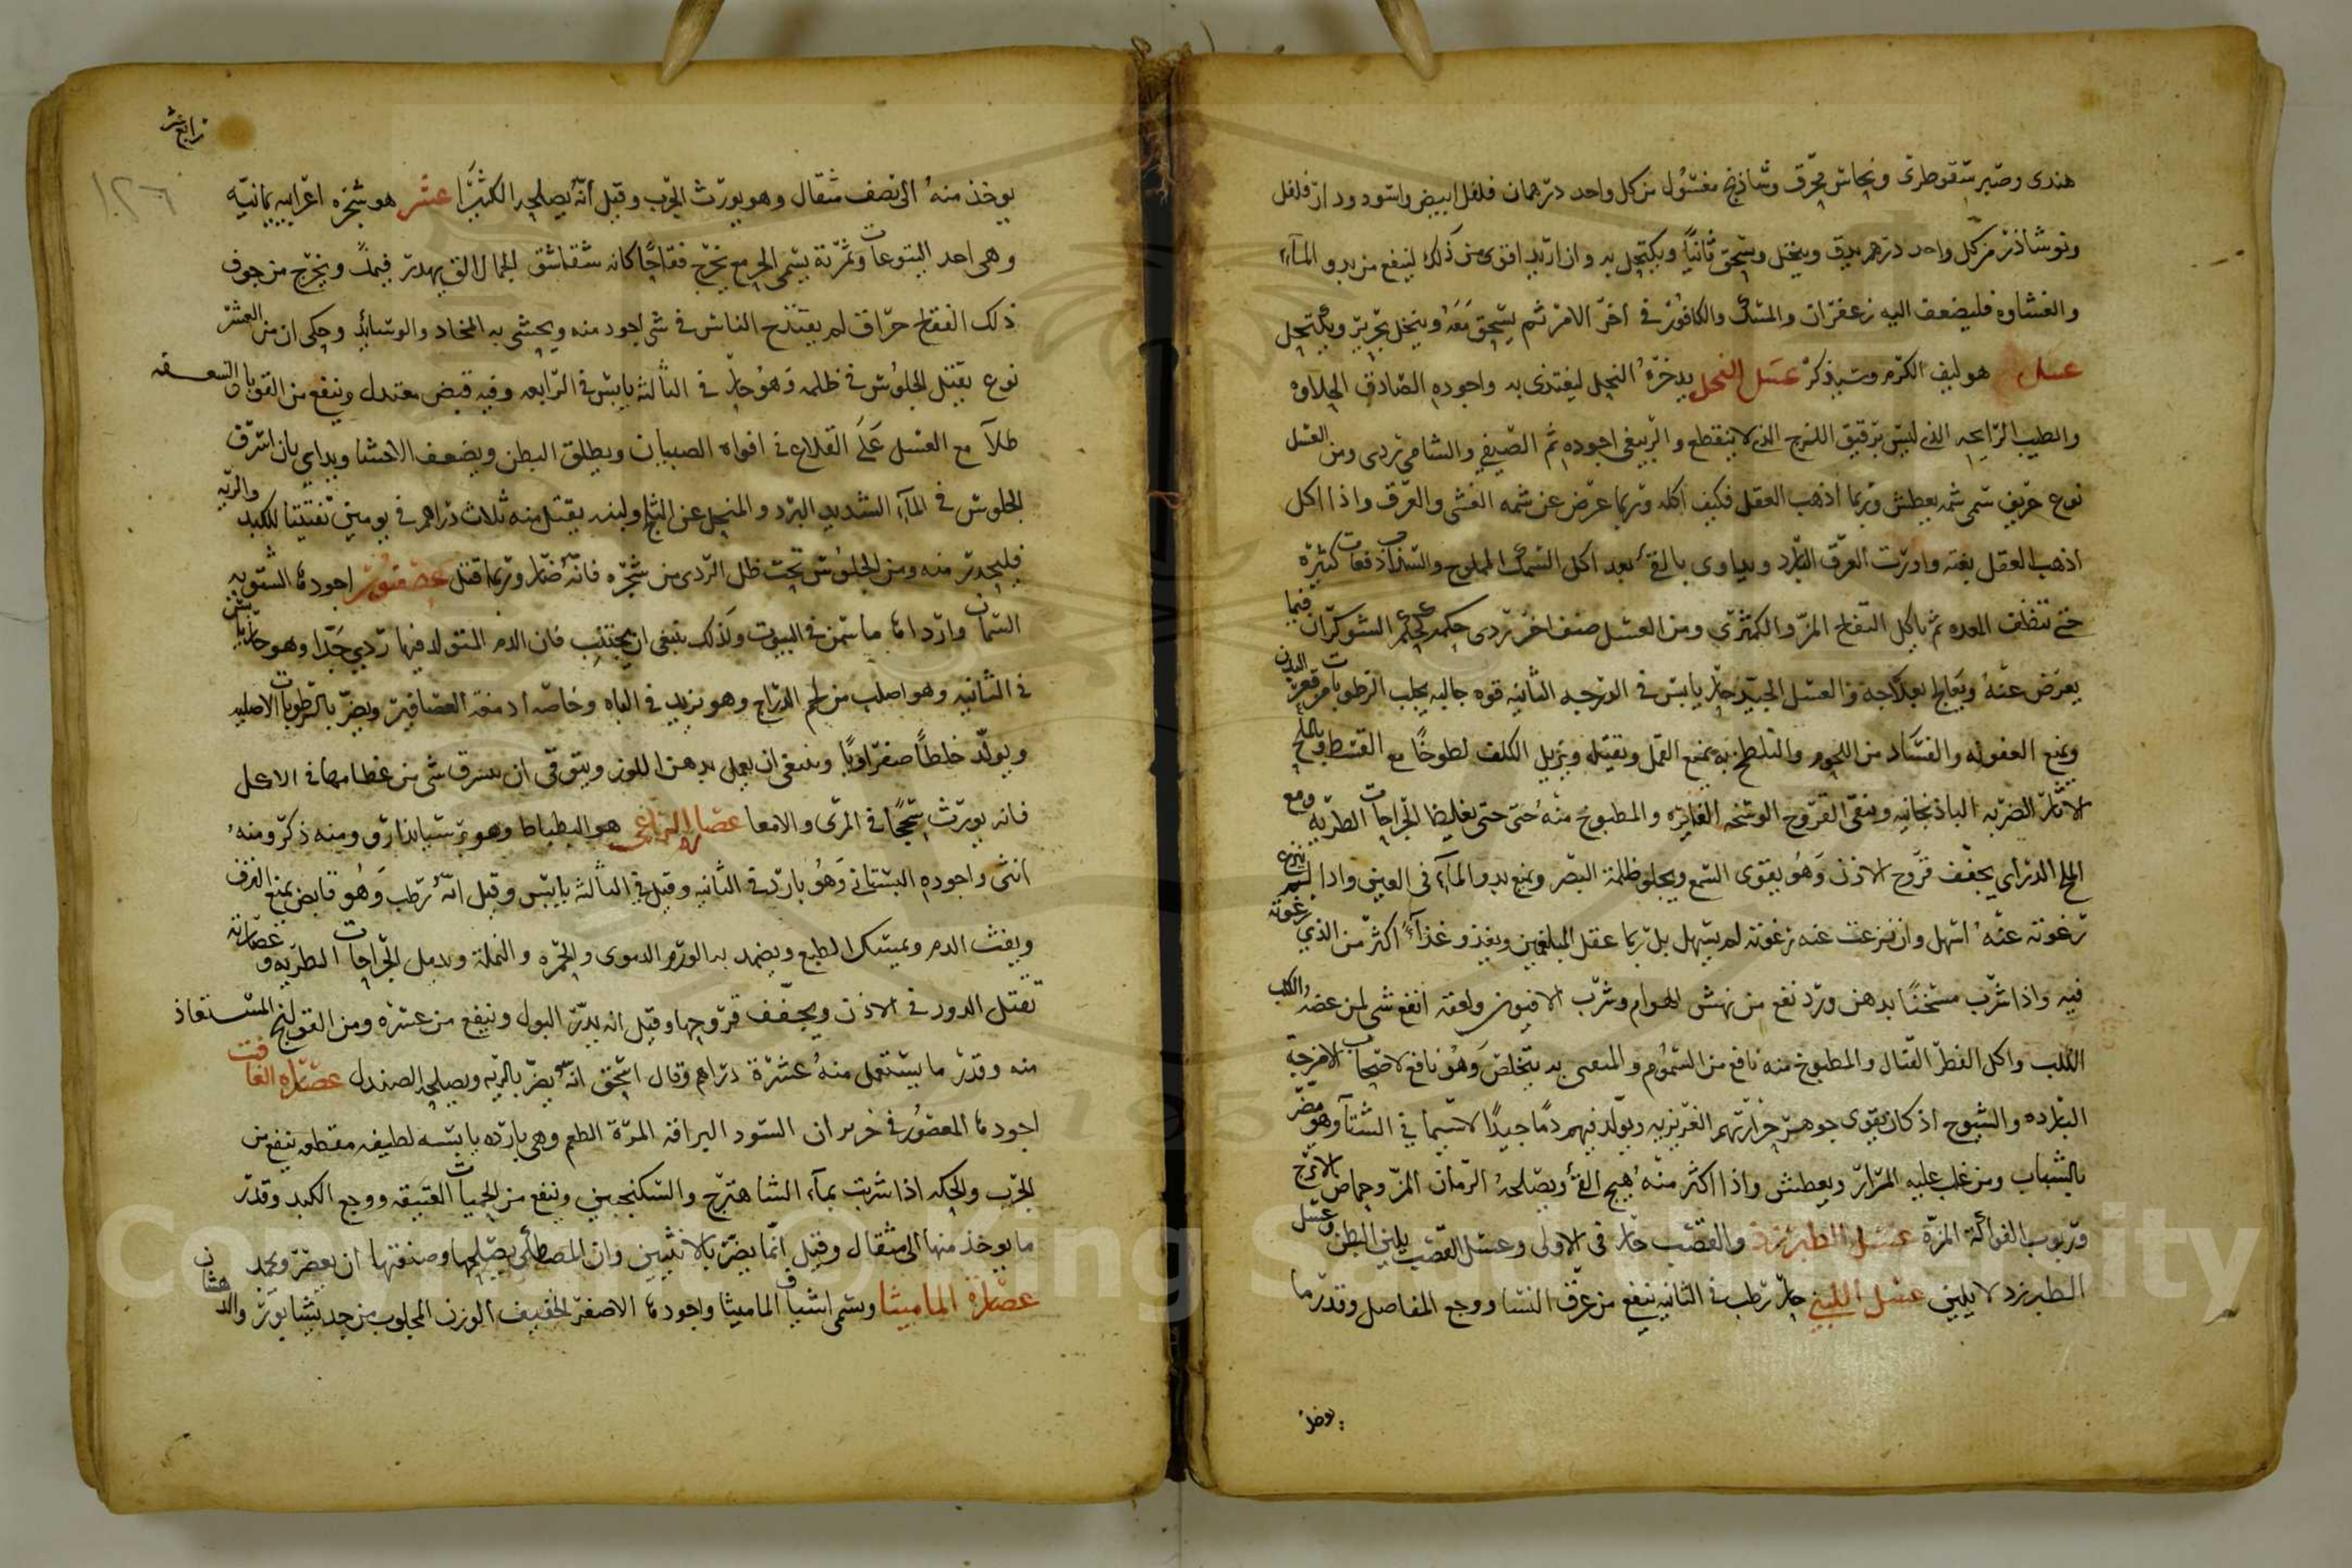 هندى وصبر سقوطرى ونحاس محرق وشاذنج مغسول من كل واحد درهمان فلفل ابيض واسود ودار فلفل
ونوشاذر من كل واحد درهم يدق وينخل ويسحق ثانيا ويكتحل به وان اريد اقوى من ذلك لينفع من بدو المآء
والغشاوه فليضعف اليه زعفران والمسك والكافور فى اخر الامر ثم يسحق معه وينخل بحرير ويكتحل
عسل هو ليف الكرم وسيذكر عسل النحل يدخره النحل ليغتذى به واجوده الصادق الحلاوه
والطيب الرايحه الذى ليس برقيق اللزج الذى لا ينقطع والربيعى اجوده ثم الصيفى والشتامى ردى ومن العسل
نوع حريف سمى شمه يعطش وربما اذهب العقل فكيف اكله وربما عرض عن شمه الغشى والعرق واذا اكل
اذهب العقل بغته واورث العرق البارد ويداوى بالقئ بعد اكل السمك المملوح والسذاب دفعات كثيرة
حتى تنظف المعده ثم ياكل التفاح المز والكمثرى ومن العسل صنف اخر ردى حكمه حكم الشوكران فيما
يعرض عنه ويعالج بعلاجه والعسل الجيد حار يابس فى الدرجه الثانيه قوه جاليه يجلب الرطوبات من قعر البدن
ويمنع العفونه والفساد من اللحوم والتلطخ به يمنع القمل ويقتله ويزيل الكلف لطوخا مع القسط وبالملح
لاثار الضربه الباذنجانيه وينقى القروح الوسخه الغايره والمطبوخ منه حتى يغليظا الجراحات الطريه ومع
الملح الدرانى يجفف قروح الاذن وهو يقوى السمع ويجلو ظلمة البصر ويمنع بدو المآء فى العين واذا لم تنزع
رغوته عنه اسهل وان نزعت عنه رغوته لم يسهل بل ربما عقل المبلغمين ويغذو غذآء اكثر من الذى رغوته
فيه واذا شرب مسخنا بدهن ورد نفع من نهش الهوام وشرب الافيون ولعقه انفع شى لمن عضه الكلب
الكلب واكل الفطر القتال والمطبوخ منه نافع من السموم والمتقى به يتخلص وهو نافع لاصحاب الامزجة
البارده والشيوخ اذ كان يقوى جوهر حرارتهم الغريزيه ويولد فيهم دما جيدا لا سيما فى الشتآ وهو مضر
بالشباب ومن غلب عليه المرار ويعطش واذا اكثر منه هيج القئ ويصلحه الرمان المز وحماض الاترج
وربوب الفواكه المزة عسل الطبرزذ والقصب حار فى الاولى وعسل القصب يلين البطن وعسل
الطبرزد لا يلين عسل اللبنى حار رطب فى الثانيه ينفع من عرق النسا ووجع المفاصل وقدر ما
يوخذ
رابع عشر
١٢٦
يوخذ منه الى نصف مثقال وهو يورث الجرب وقيل انه يصلحه الكثيرا عشر هو شجره اعرابيه يمانيه
وهى احد اليتوعات وثمرته يسمى الخرمع يخرج فقاحا كانه شقاشق الجمال التى يهدر فيها ويخرج من جوف
ذلك الفقاح حراق لم يقتدح الناس فى شى اجود منه ويحشى به المخاد والوسايد وحكى ان من العشر
نوع يقتل الجلوس فى ظله وهو حار فى الثالثه يابس فى الرابعه وفيه قبض معتدل وينفع من القوبا والسعفه
طلآ مع العسل على القلاع فى افواه الصبيان ويطلق البطن ويضعف الاحشا ويداوى بان اشرف
الجلوس فى المآء الشديد البرد والمنحل عن الثلج ولبنه يقتل منه ثلاث دراهم فى يومين تفتيتا للكبد والريه
فليحذر منه ومن الجلوس تحت ظل الردى من شجره فانه ضار وربما قتل عصفور اجوده الشتويه
السمان وارداه ما سمن فى البيوت ولذلك ينبغى ان يجتنب فان الدم المتولد فيها ردى جدا وهو حار يابس
فى الثانيه وهو اصلب من لحم الدراج وهو يزيد فى الباه وخاصه ادمغه العصافير ويضر بالرطوبات الاصليه
ويولد خلطا صفراويا وينبغى ان يعمل بدهن اللوز ويتوقى ان يسرق شى من عظامها فى الاكل
فانه يورث سحجا فى المرى والامعا عصا الراعى هو البطباط وهو برسياندارو ومنه ذكر ومنه
انثى واجوده البستانى وهو بارد فى الثانيه وقيل فى الثالثه يابس وقيل انه رطب وهو قابض يمنع النزف
وينفث الدم ويمسك الطبع ويضمد به الورم الدموى والحمره والنملة ويدمل الجراحات الطريه وعصارته
تقتل الدود فى الاذن ويجفف قروحها وقيل انه يدر البول وينفع من عسره ومن القولنج المستعاذ
منه وقدر ما يستعمل منه عشرة دراهم وقال اسحق انه يضر بالريه ويصلحه الصندل عصاره الغافت
اجوده المعصور فى حزيران السود البراقه المرة الطعم وهى بارده يابسه لطيفه مقطعه ينفع من
الجرب والحكه اذا شربت بمآء الشاهترج والسكنجبين وينفع من الحميات العتيقه ووجع الكبد وقدر
ما يوخذ منها الى مثقال وقيل انها يضر بالانثيين وان المصطكى يصلحها وصنعتها ان يعصر ويجمد
عصارة الماميثا ويسمى اشياف الماميثا واجوده الاصفر الخفيف الوزن المجلوب من جديشابور والد هشان